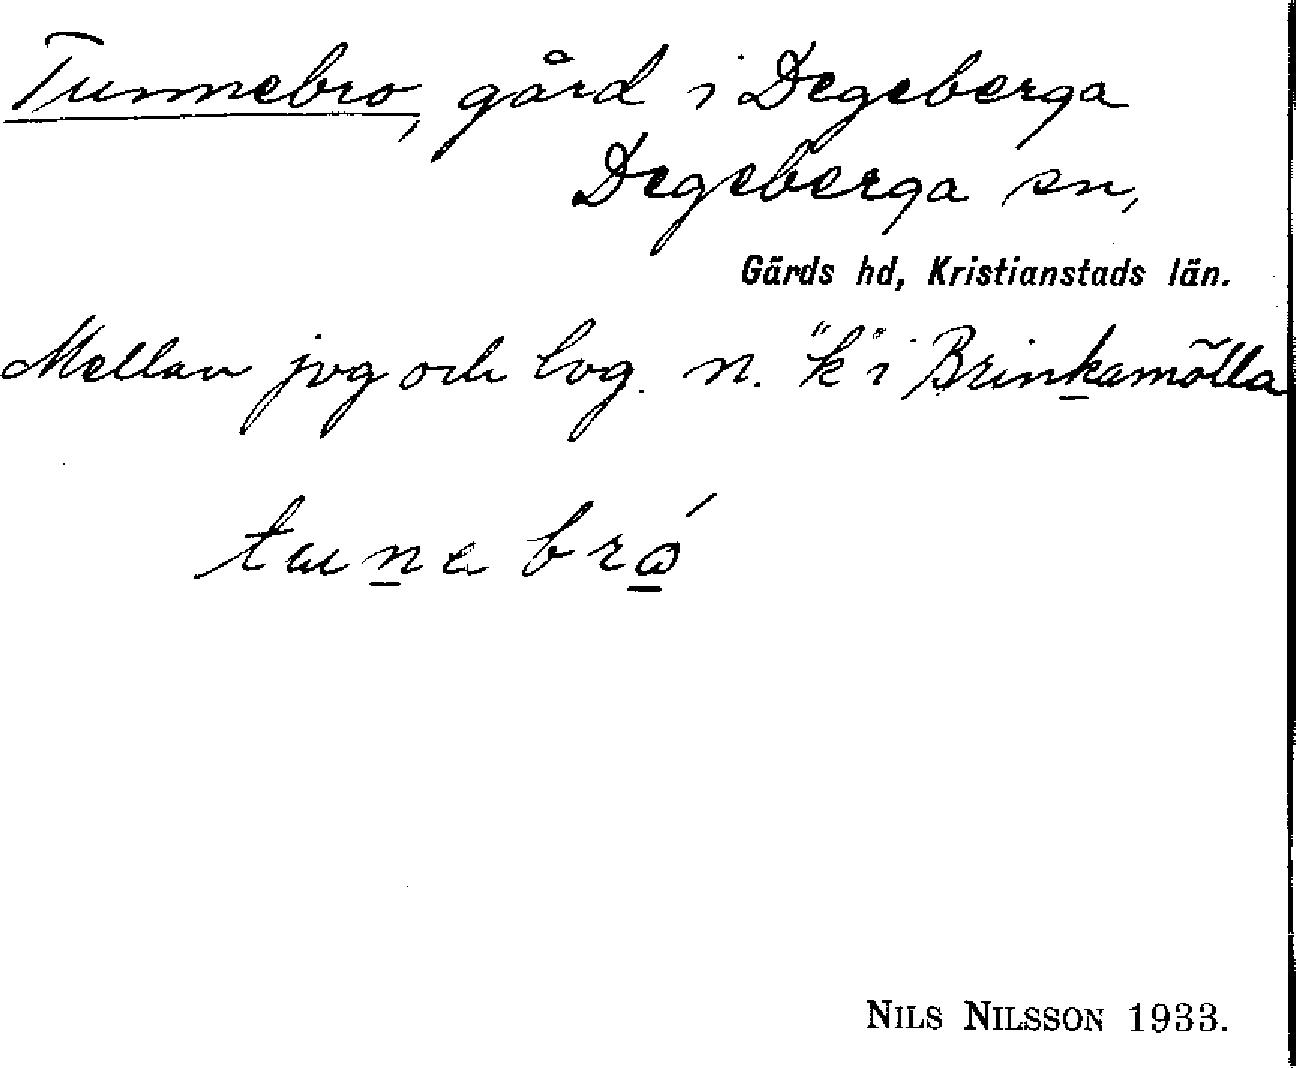 Tunnebro, gård i Degeberga
Degeberga sn,
Gärds hd, Kristianstads län.
Mellan jvg och lvg. n. "k" i Brinkamölla
tunebró
NILS NILSSON 1933.